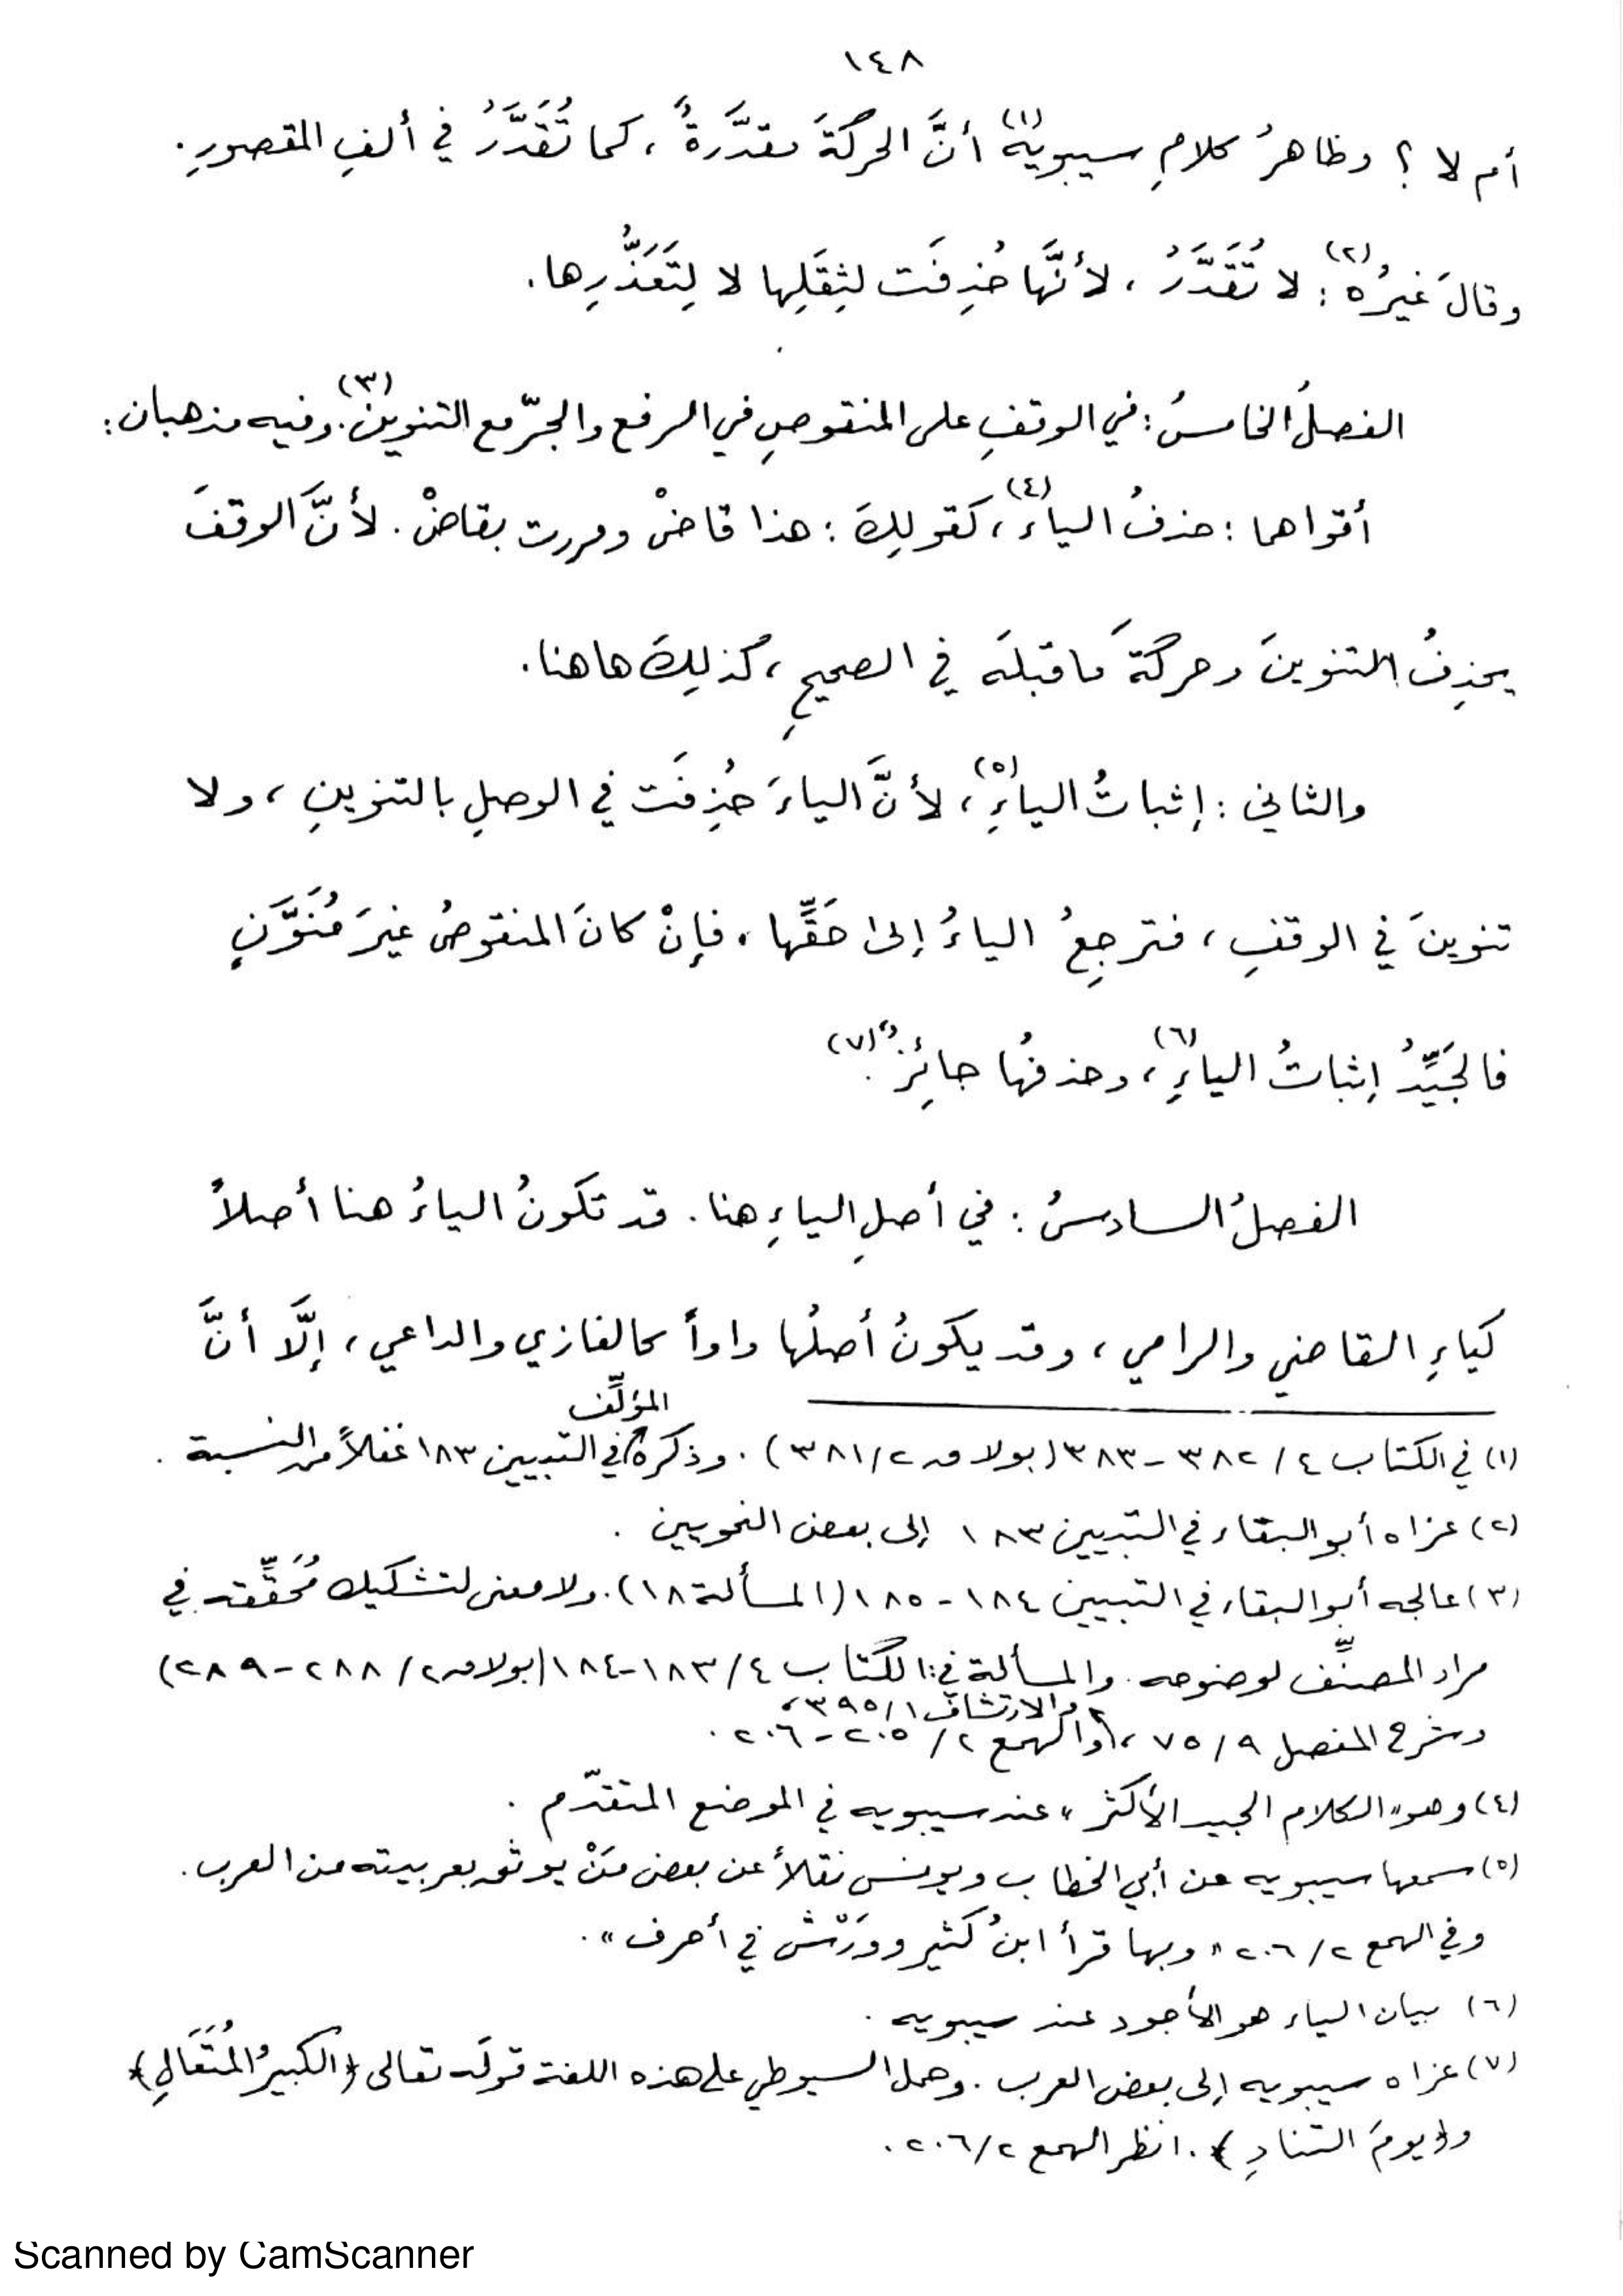 ١٤٨
أم لا ؟ وظاهرُ كلامِ سيبويه(١) أنَّ الحركةَ مقدَّرةٌ ، كما تُقَدَّرُ في ألفِ المقصورِ .
وقالَ غيرُه(٢) : لا تُقَدَّرُ ، لأنَّها حُذِفَت لثِقَلِها لا لِتَعَذُّرِها .
الفصلُ الخامسُ : في الوقفِ على المنقوصِ في الرفع والجرّ مع التنوين(٣) . وفيه مذهبان :
أقواهما : حذفُ الياء(٤) ، كقولِكَ : هذا قاضْ ومررت بقاضْ . لأنَّ الوقفَ
يحذِفُ التنوينَ وحركةَ ما قبلَه في الصحيحِ ، كذلِكَ هاهنا .
والثاني : إثباتُ الياءِ(٥) ، لأنَّ الياءَ حُذِفَت في الوصلِ بالتنوينِ ، ولا
تنوينَ في الوقفِ ، فترجِعُ الياءُ إلى حَقِّها . فإنْ كانَ المنقوصُ غيرَ مُنَوَّنٍ
فالجَيِّدُ إثباتُ الياءِ(٦) ، وحذفُها جائِزٌ(٧) .
الفصلُ السادسُ : في أصلِ الياءِ هنا . قد تكونُ الياءُ هنا أصلاً
كياءِ القاضي والرامي ، وقد يكونُ أصلُها واواً كالغازي والداعي ، إلَّا أنَّ
(١) في الكتاب ٤ / ٣٨٢ - ٣٨٣ (بولاق ٢ / ٣٨١) . وذكره المؤلِّف في التبيين ١٨٣ غفلاً من النسبة .
(٢) عزاه أبو البقاء في التبيين ١٨٣ إلى بعض النحويين .
(٣) عالجه أبو البقاء في التبيين ١٨٤ - ١٨٥ (المسألة ١٨) . ولا معنى لتشكيك مُحَقِّقه في
مراد المصنِّف لوضوحه . والمسألة في : الكتاب ٤ / ١٨٣ - ١٨٤ (بولاق ٢ / ٢٨٨ - ٢٨٩)
وشرح المفصل ٩ / ٧٥ ، والارتشاف ١ / ٣٩٥ ، والهمع ٢ / ٢٠٥ - ٢٠٦ .
(٤) وهو " الكلام الجيد الأكثر " عند سيبويه في الموضع المتقدّم .
(٥) سمعها سيبويه عن أبي الخطاب ويونس نقلاً عن بعض مَنْ يوثق بعربيته من العرب .
وفي الهمع ٢ / ٢٠٦ " وبها قرأ ابنُ كثير ووَرْش في أحرف " .
(٦) بيان الياء هو الأجود عند سيبويه .
(٧) عزاه سيبويه إلى بعض العرب . وحمل السيوطي على هذه اللغة قولَه تعالى ﴿الكبيرُ المُتَعَالِ﴾
و﴿يومَ التنادِ﴾ . انظر الهمع ٢ / ٢٠٦ .
Scanned by CamScanner